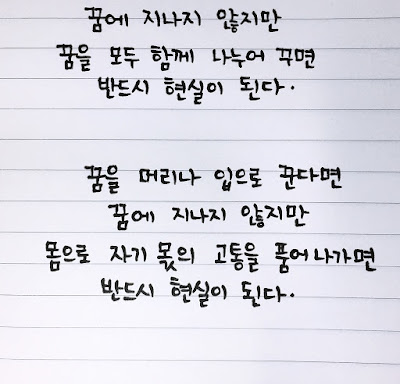 꿈에 지나지 않지만
꿈을 모두 함께 나누어 꾸면
반드시 현실이 된다.
꿈을 머리나 입으로 꾼다면
꿈에 지나지 않지만
몸으로 자기 몫의 고통을 품어나가면
반드시 현실이 된다.